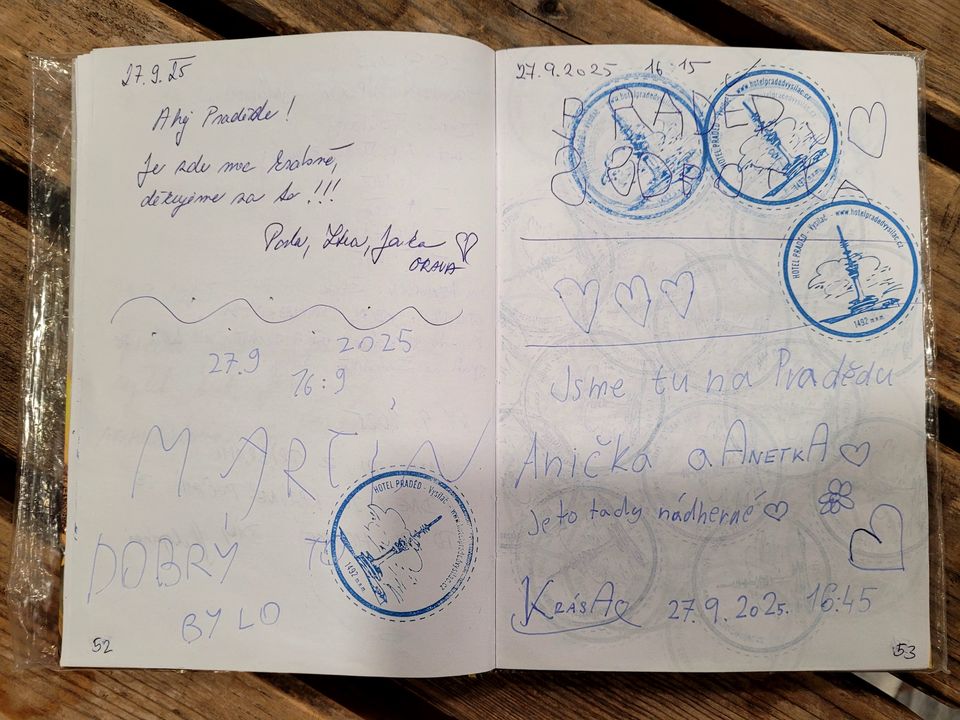 27.9.25
Ahoj Praděde!
Je zde moc krásně,
děkujeme za to!!!
ORAVA
27.9 2025
16:9
MARTÍN
DOBRÝ TO
BYLO
HOTEL PRADĚD - Vysílač - www.hotelpradedvysilac.cz
1492 m n m
52
27.9.2025 16:15
PRADĚD
www.hotelpradedvysilac.cz
HOTEL PRADĚD - Vysílač - www.hotelpradedvysilac.cz
1492 m n m
HOTEL PRADĚD - Vysílač - www.hotelpradedvysilac.cz
1492 m n m
Jsme tu na Pradědu
Anička a ANETKA
Je to tady nádherné
KRÁSA 27.9.2025. 16:45
53